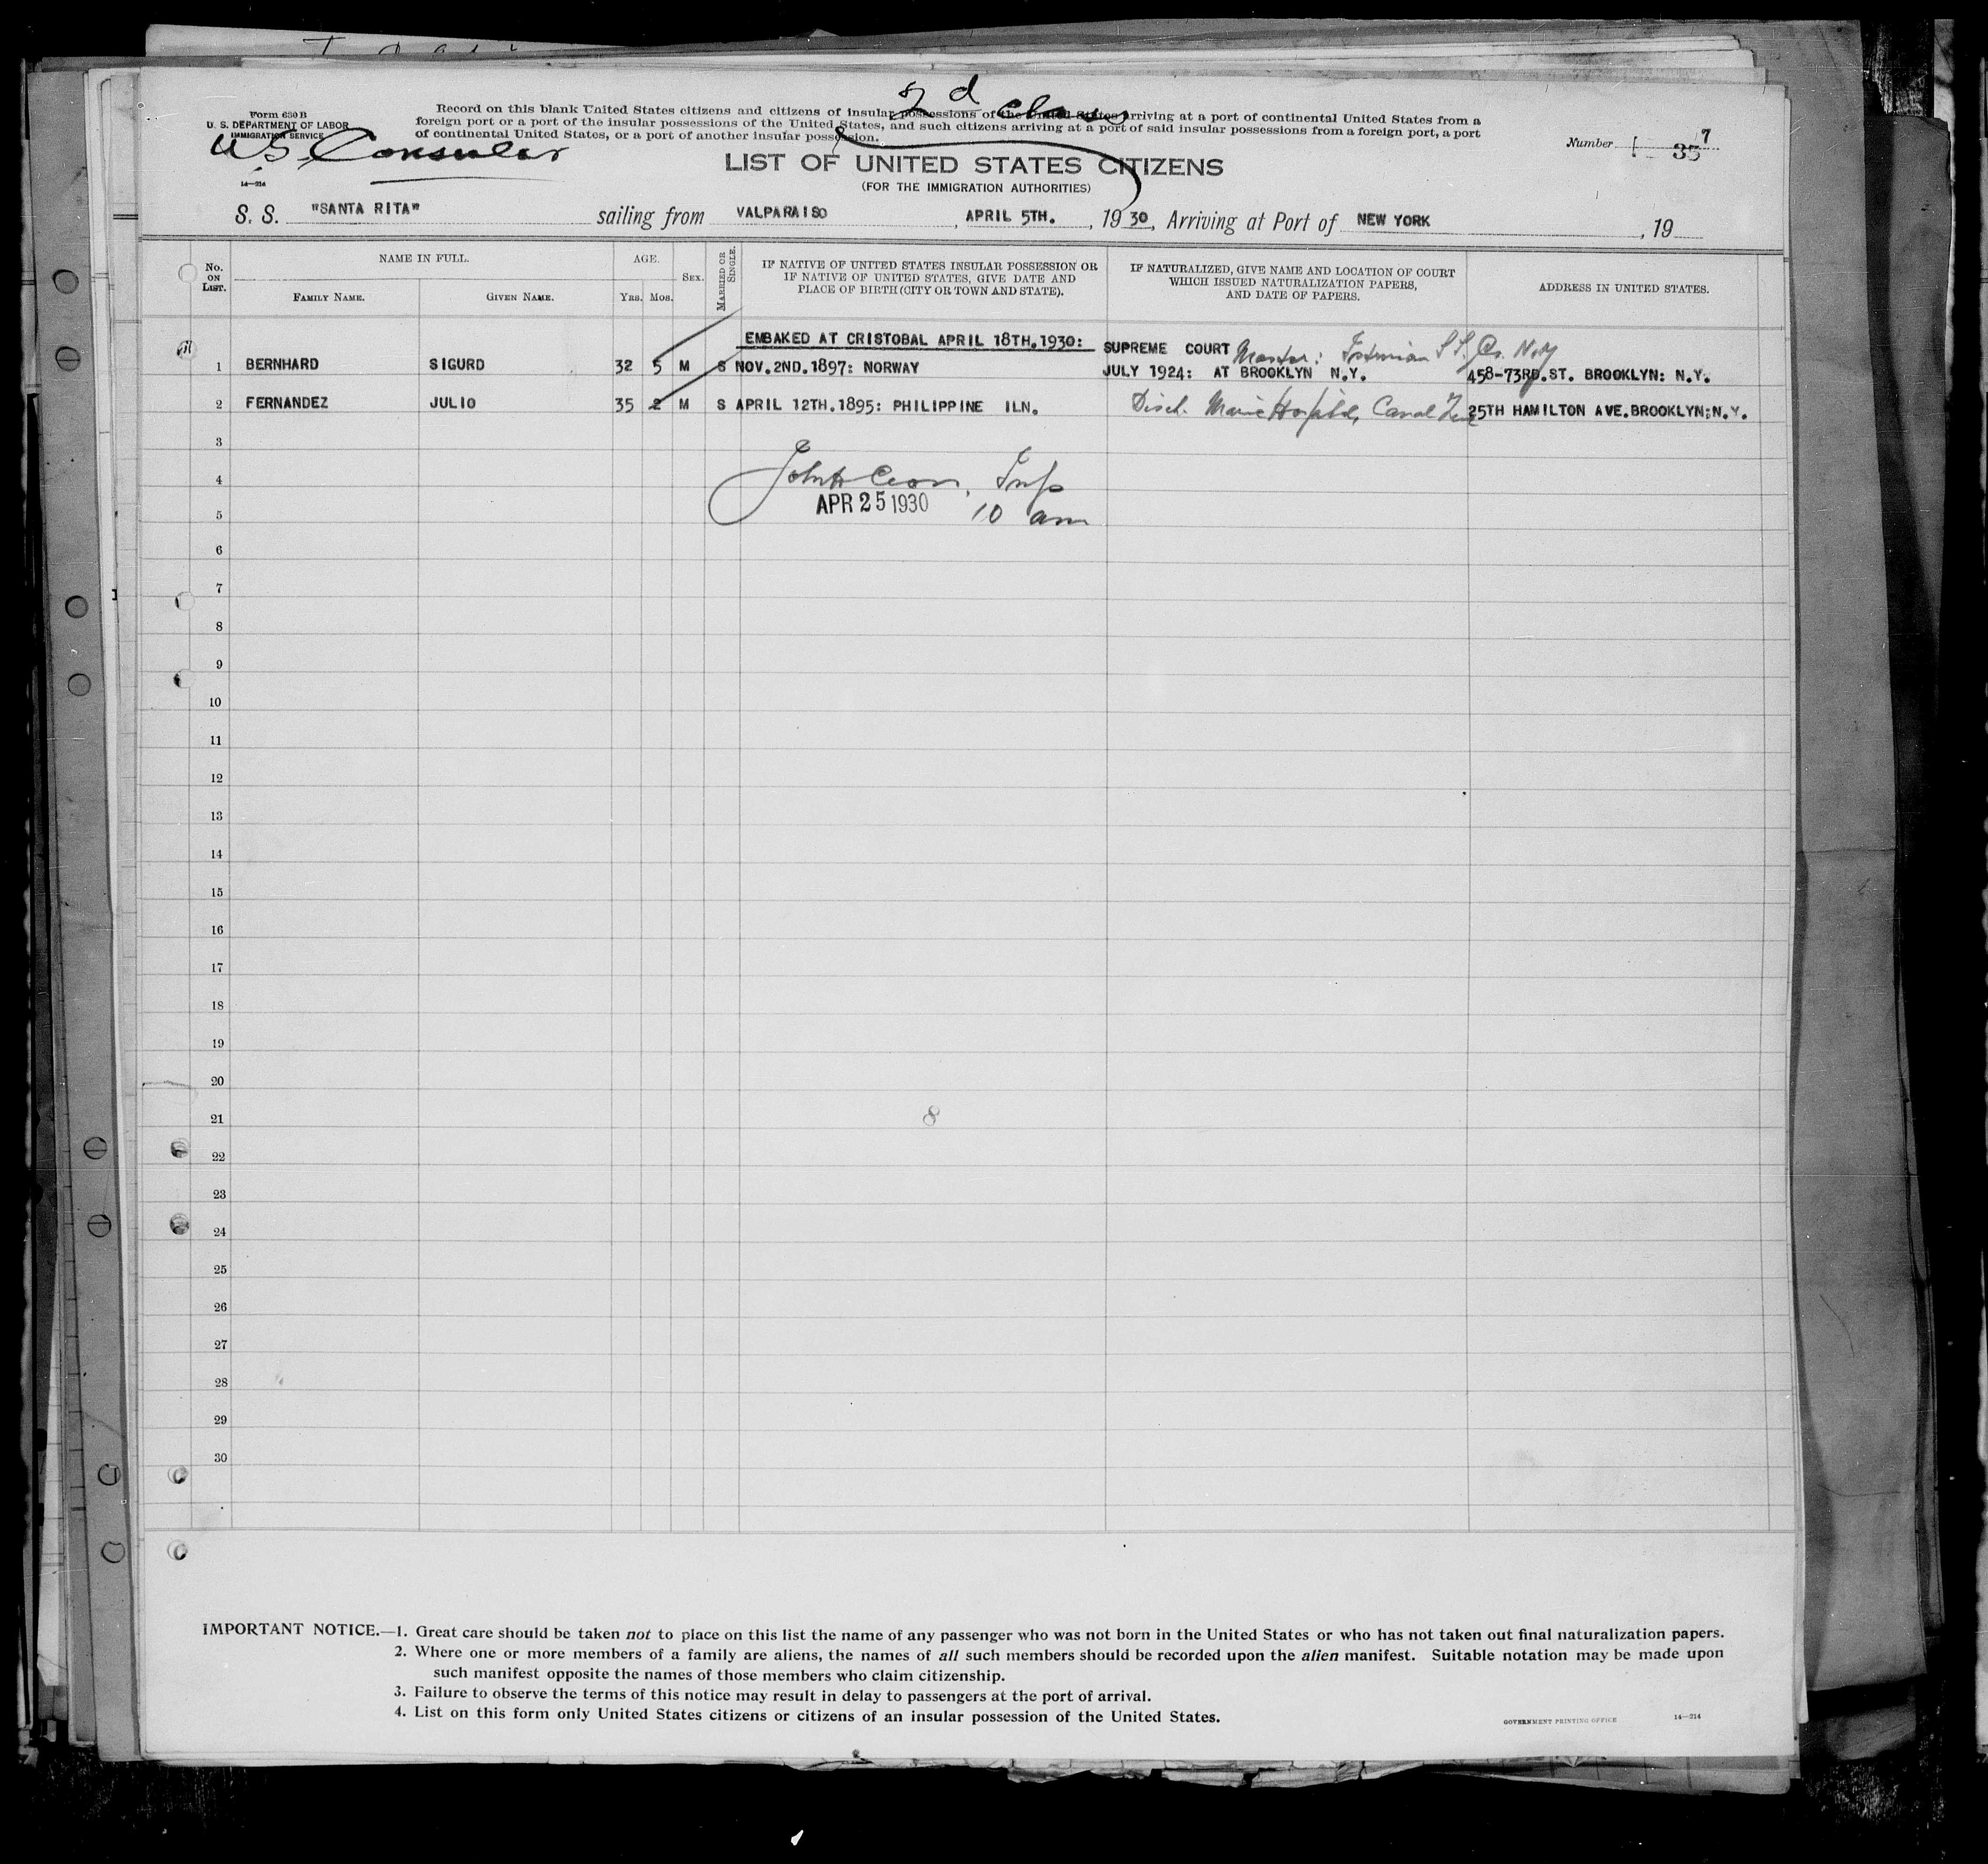 2d Class
Form 630 B
U. S. DEPARTMENT OF LABOR
IMMIGRATION SERVICE
US Consular
14—214
Record on this blank United States citizens and citizens of insular possessions of the United States arriving at a port of continental United States from a
foreign port or a port of the insular possessions of the United States, and such citizens arriving at a port of said insular possessions from a foreign port, a port
of continental United States, or a port of another insular possession.
Number 35 7
LIST OF UNITED STATES CITIZENS
(FOR THE IMMIGRATION AUTHORITIES)
S. S. "SANTA RITA" sailing from VALPARAISO, APRIL 5TH., 1930, Arriving at Port of NEW YORK, 19
No. ON LIST.
NAME IN FULL.
FAMILY NAME. GIVEN NAME.
AGE.
YRS. MOS.
SEX.
MARRIED OR SINGLE.
IF NATIVE OF UNITED STATES INSULAR POSSESSION OR
IF NATIVE OF UNITED STATES, GIVE DATE AND
PLACE OF BIRTH (CITY OR TOWN AND STATE).
IF NATURALIZED, GIVE NAME AND LOCATION OF COURT
WHICH ISSUED NATURALIZATION PAPERS,
AND DATE OF PAPERS.
ADDRESS IN UNITED STATES.
EMBAKED AT CRISTOBAL APRIL 18TH.1930: SUPREME COURT S.S. Co. N.Y
1 BERNHARD SIGURD 32 5 M S NOV.2ND.1897: NORWAY JULY 1924: AT BROOKLYN N.Y. 458-73RD.ST. BROOKLYN: N.Y.
2 FERNANDEZ JULIO 35 2 M S APRIL 12TH.1895: PHILIPPINE ILN. Disch. Marine Hospital, Canal Zone 25TH HAMILTON AVE.BROOKLYN:N.Y.
3
4 Insp
APR 25 1930 10 am
5
6
7
8
9
10
11
12
13
14
15
16
17
18
19
20
21 8
22
23
24
25
26
27
28
29
30
IMPORTANT NOTICE.—1. Great care should be taken not to place on this list the name of any passenger who was not born in the United States or who has not taken out final naturalization papers.
2. Where one or more members of a family are aliens, the names of all such members should be recorded upon the alien manifest. Suitable notation may be made upon
such manifest opposite the names of those members who claim citizenship.
3. Failure to observe the terms of this notice may result in delay to passengers at the port of arrival.
4. List on this form only United States citizens or citizens of an insular possession of the United States.
GOVERNMENT PRINTING OFFICE 14—214